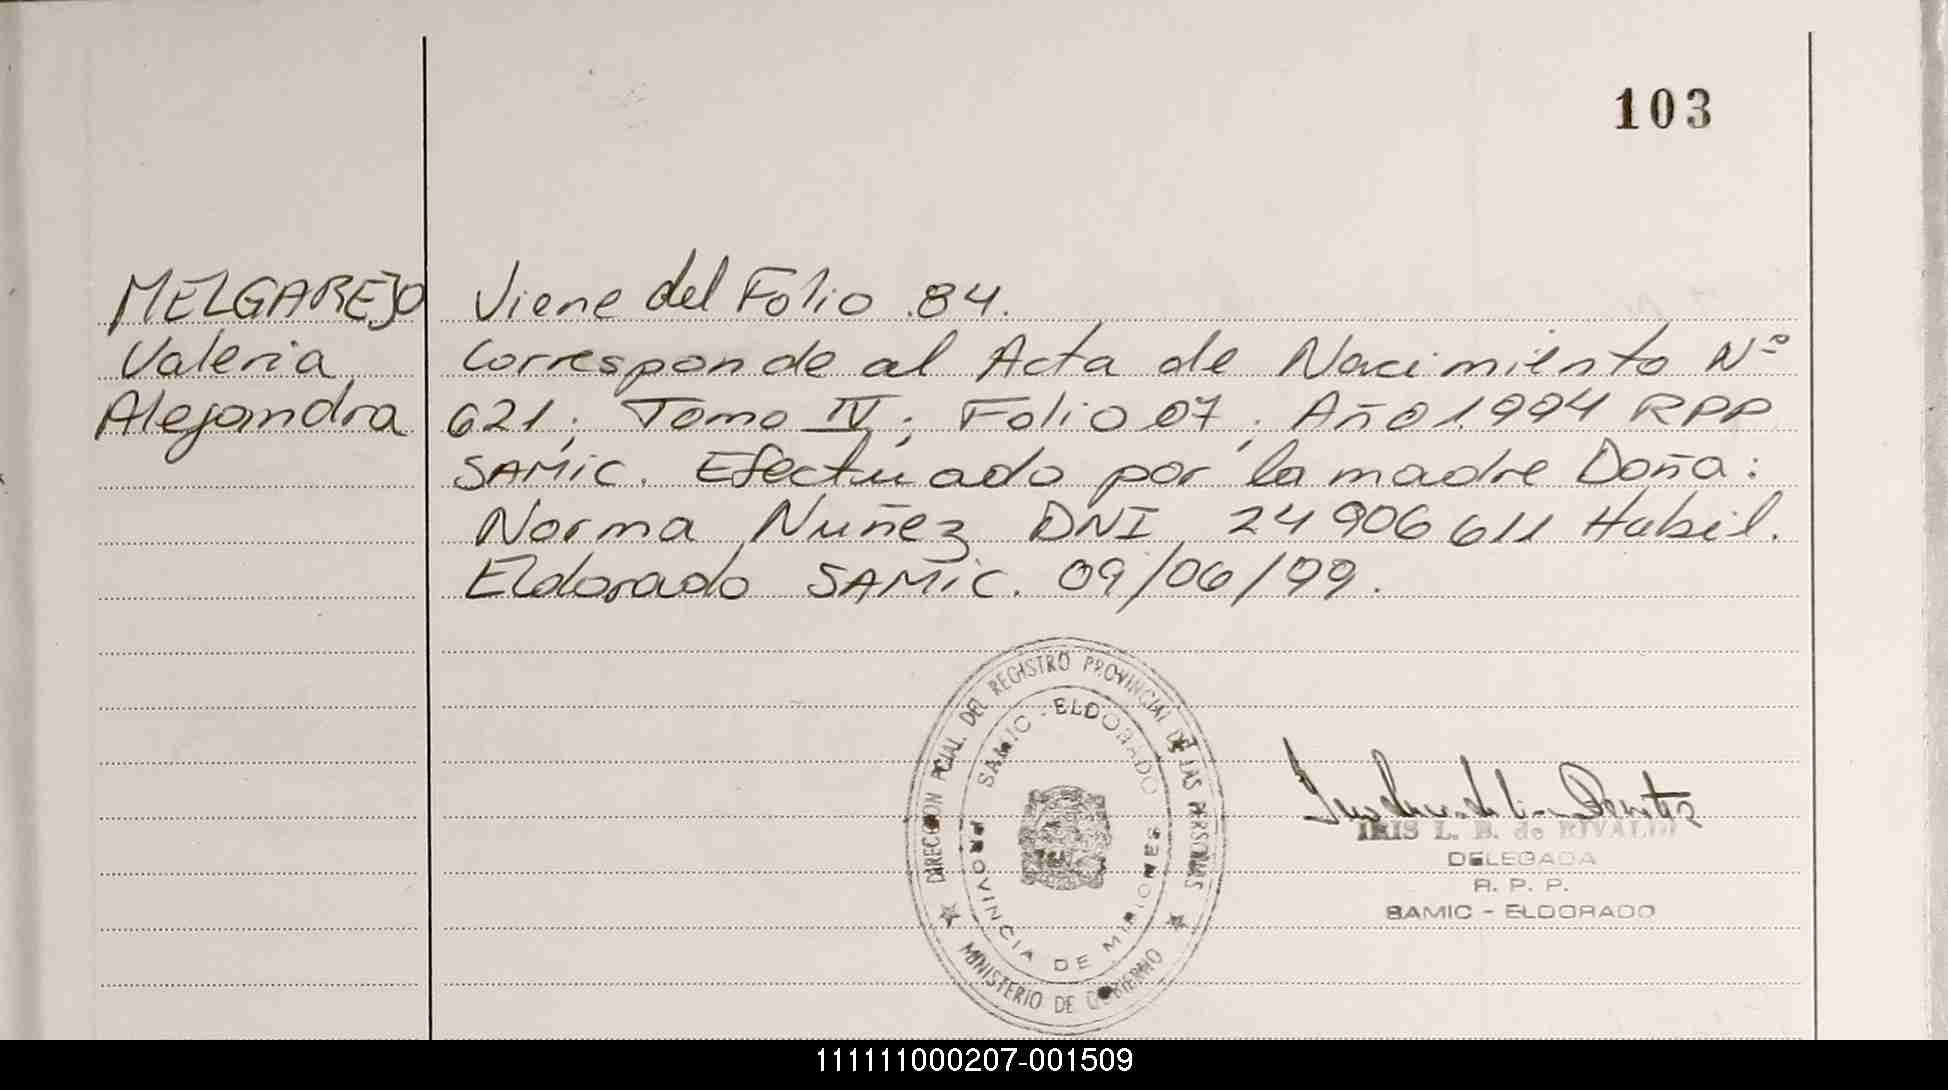 103
MELGAREJO
Valeria
Alejandra
Viene del Folio 84.
Corresponde al Acta de Nacimiento Nº
621; Tomo IV; Folio 07; Año 1.994 RPP
SAMIC. Efectuado por la madre Doña:
Norma Nuñez DNI 24 906 611 Habil.
Eldorado SAMIC. 09/06/99.
DIRECCION PCIAL. DEL REGISTRO PROVINCIAL DE LAS PERSONAS
SAMIC - ELDORADO
PROVINCIA DE MISIONES
MINISTERIO DE GOBIERNO
IRIS L. B. de RIVALDI
DELEGADA
R. P. P.
SAMIC - ELDORADO
111111000207-001509